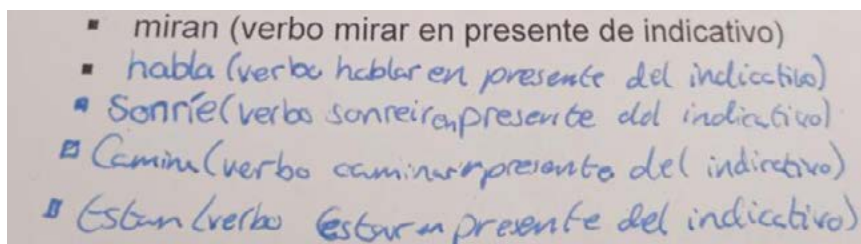 ▪ miran (verbo mirar en presente de indicativo)
▪ habla (verbo hablar en presente del indicativo)
▪ Sonríe (verbo sonreir en presente del indicativo)
▪ Camina (verbo caminar en presente del indicativo)
▪ Estan (verbo Estar en presente del indicativo)